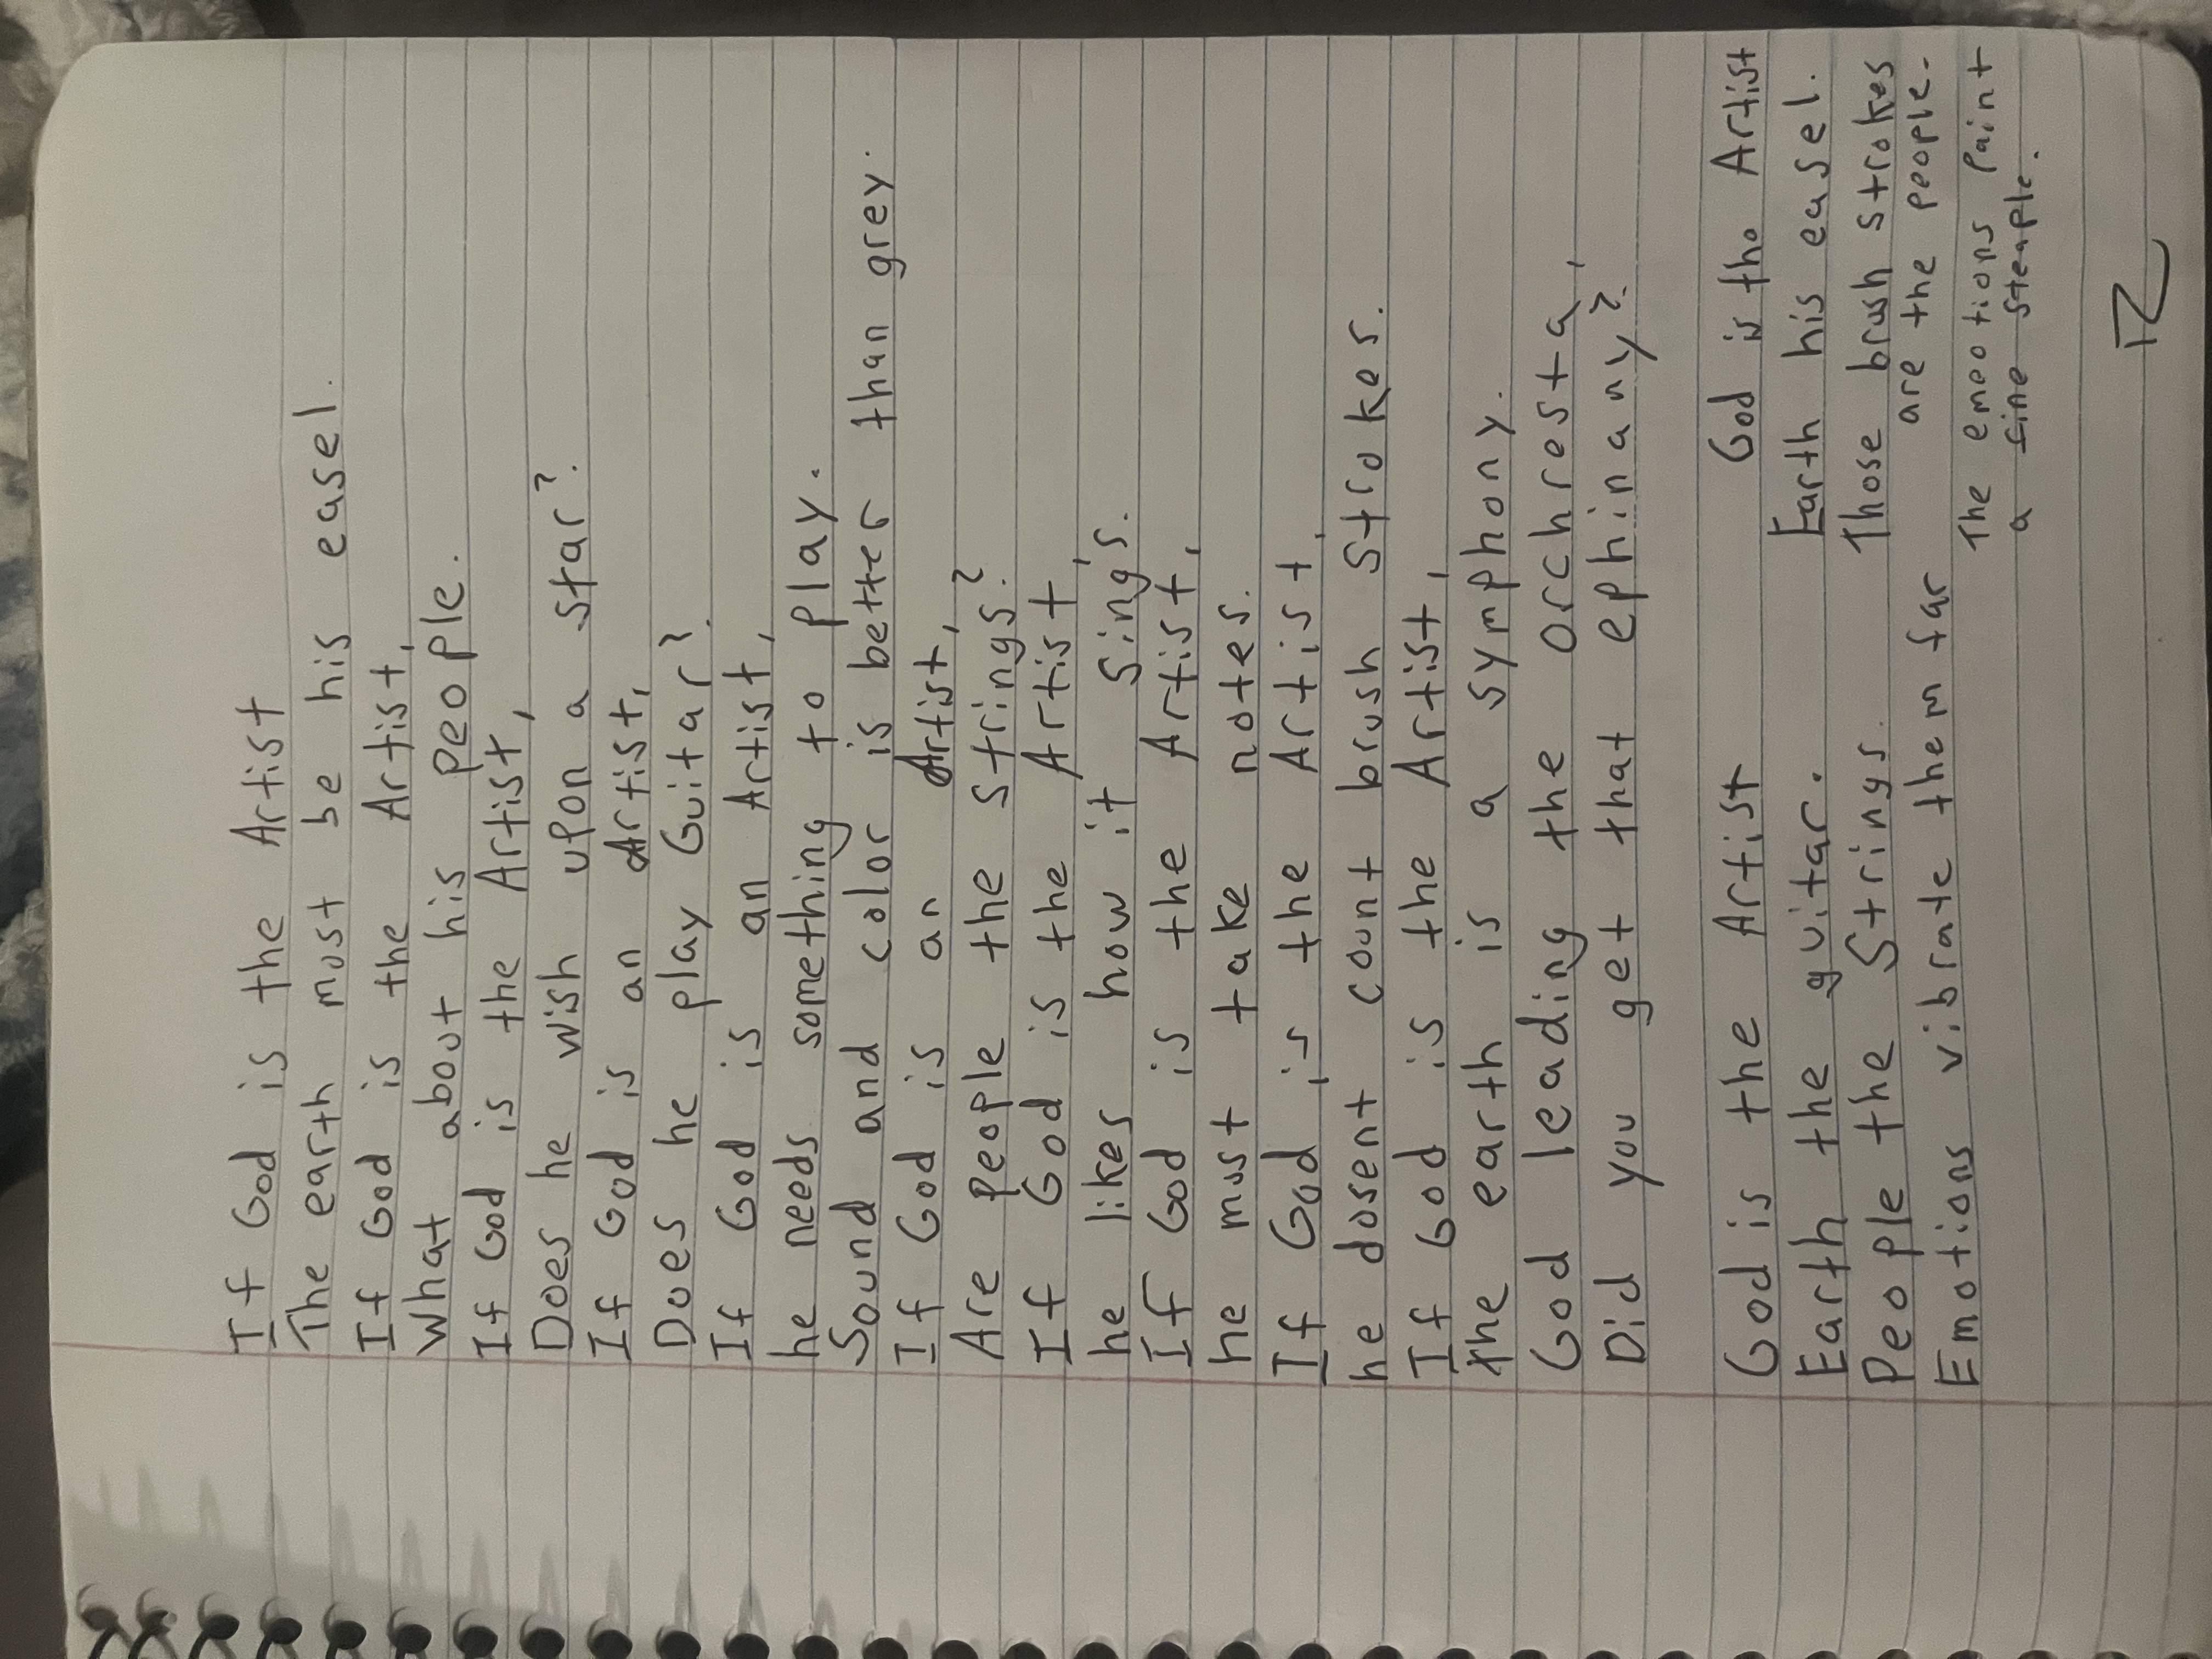 If God is the Artist
The earth must be his easel.
If God is the Artist,
What about his people.
If God is the Artist,
Does he wish upon a star?
If God is an Artist,
Does he play Guitar?
If God is an Artist,
he needs something to play.
Sound and color is better than grey.
If God is an Artist,
Are people the strings?
If God is the Artist,
he likes how it sings.
If God is the Artist,
he must take notes.
If God is the Artist,
he dosent count brush strokes.
If God is the Artist,
the earth is a symphony.
God leading the orchresta,
Did you get that ephinany?
God is the Artist
Earth the guitar.
People the Strings.
Emotions vibrate them far
God is the Artist
Earth his easel.
Those brush strokes
are the people.
The emeotions Paint
a fine steaple.